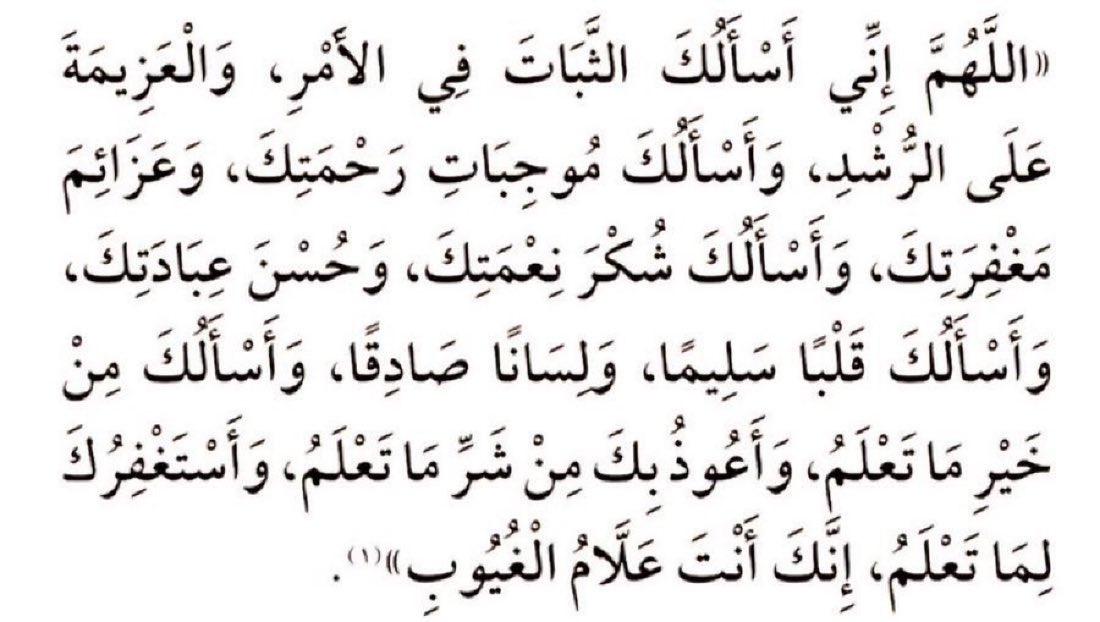 «اللَّهُمَّ إِنِّي أَسْأَلُكَ الثَّبَاتَ فِي الأَمْرِ، وَالْعَزِيمَةَ
عَلَى الرُّشْدِ، وَأَسْأَلُكَ مُوجِبَاتِ رَحْمَتِكَ، وَعَزَائِمَ
مَغْفِرَتِكَ، وَأَسْأَلُكَ شُكْرَ نِعْمَتِكَ، وَحُسْنَ عِبَادَتِكَ،
وَأَسْأَلُكَ قَلْبًا سَلِيمًا، وَلِسَانًا صَادِقًا، وَأَسْأَلُكَ مِنْ
خَيْرِ مَا تَعْلَمُ، وَأَعُوذُ بِكَ مِنْ شَرِّ مَا تَعْلَمُ، وَأَسْتَغْفِرُكَ
لِمَا تَعْلَمُ، إِنَّكَ أَنْتَ عَلَّامُ الْغُيُوبِ»(١).